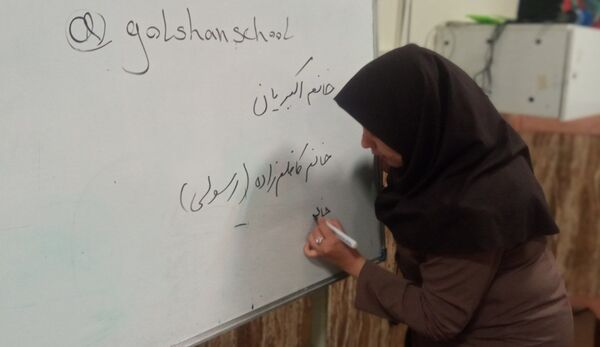 @ golshanschool
خانم اکبریان
خانم کاظم زاده (رسولی)
خانم